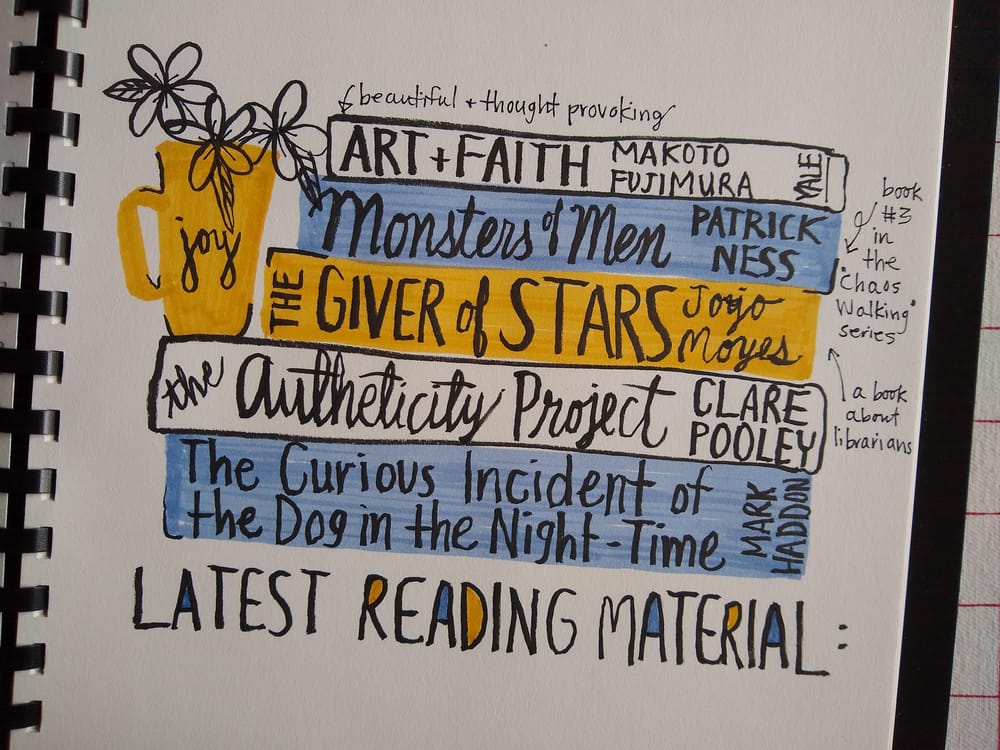 beautiful + thought provoking
ART + FAITH
MAKOTO
FUJIMURA
YALE
Monsters of Men
PATRICK
NESS
book
#3
in
the
"Chaos
Walking"
series
THE GIVER of STARS
Jojo
Moyes
a book
about
librarians
the Autheticity Project
CLARE
POOLEY
The Curious Incident of
the Dog in the Night-Time
MARK
HADDON
joy
LATEST READING MATERIAL: